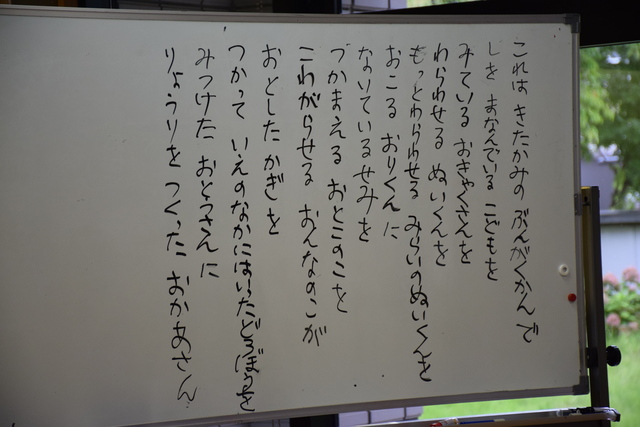 これは きたかみの ぶんがくかんで
しを まなんでいる こどもを
みている おきゃくさんを
わらわせる ぬいくんを
もっとわらわせる みらいのぬいくんを
おこる おりくんに
ないているせみを
つかまえる おとこのこを
こわがらせる おんなのこが
おとした かぎを
つかって いえのなかにはいったどろぼうを
みつけた おとうさんに
りょうりを つくった おかあさん